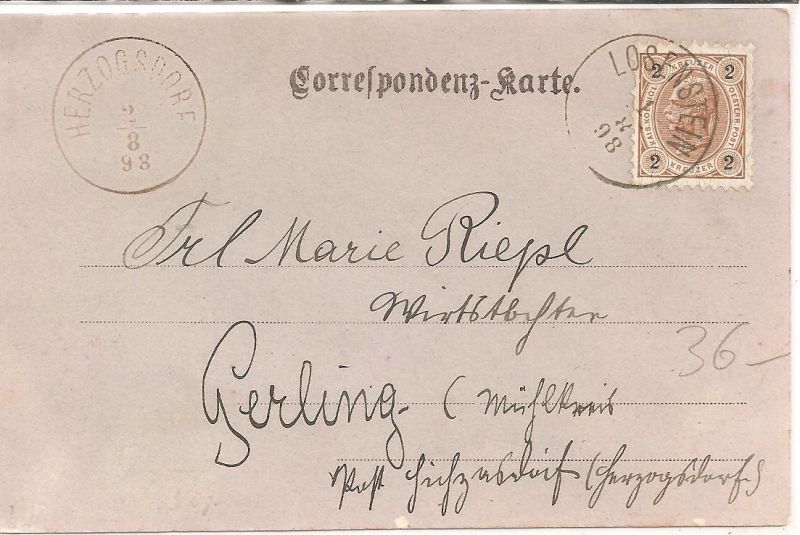 HERZOGSDORF
2/8
98
Correspondenz-Karte.
LOSENSTEIN
98
2 KREUZER 2
KAIS. KÖNIGL. OESTERR. POST
2 KREUZER 2
Frl Marie Riepl
Wirtstochter
36-
Gerling. (Mühlkreis
Post (Herzogsdorf)